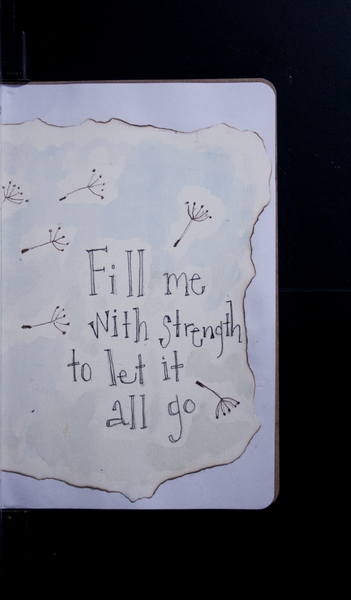 Fill me
with strength
to let it
all go